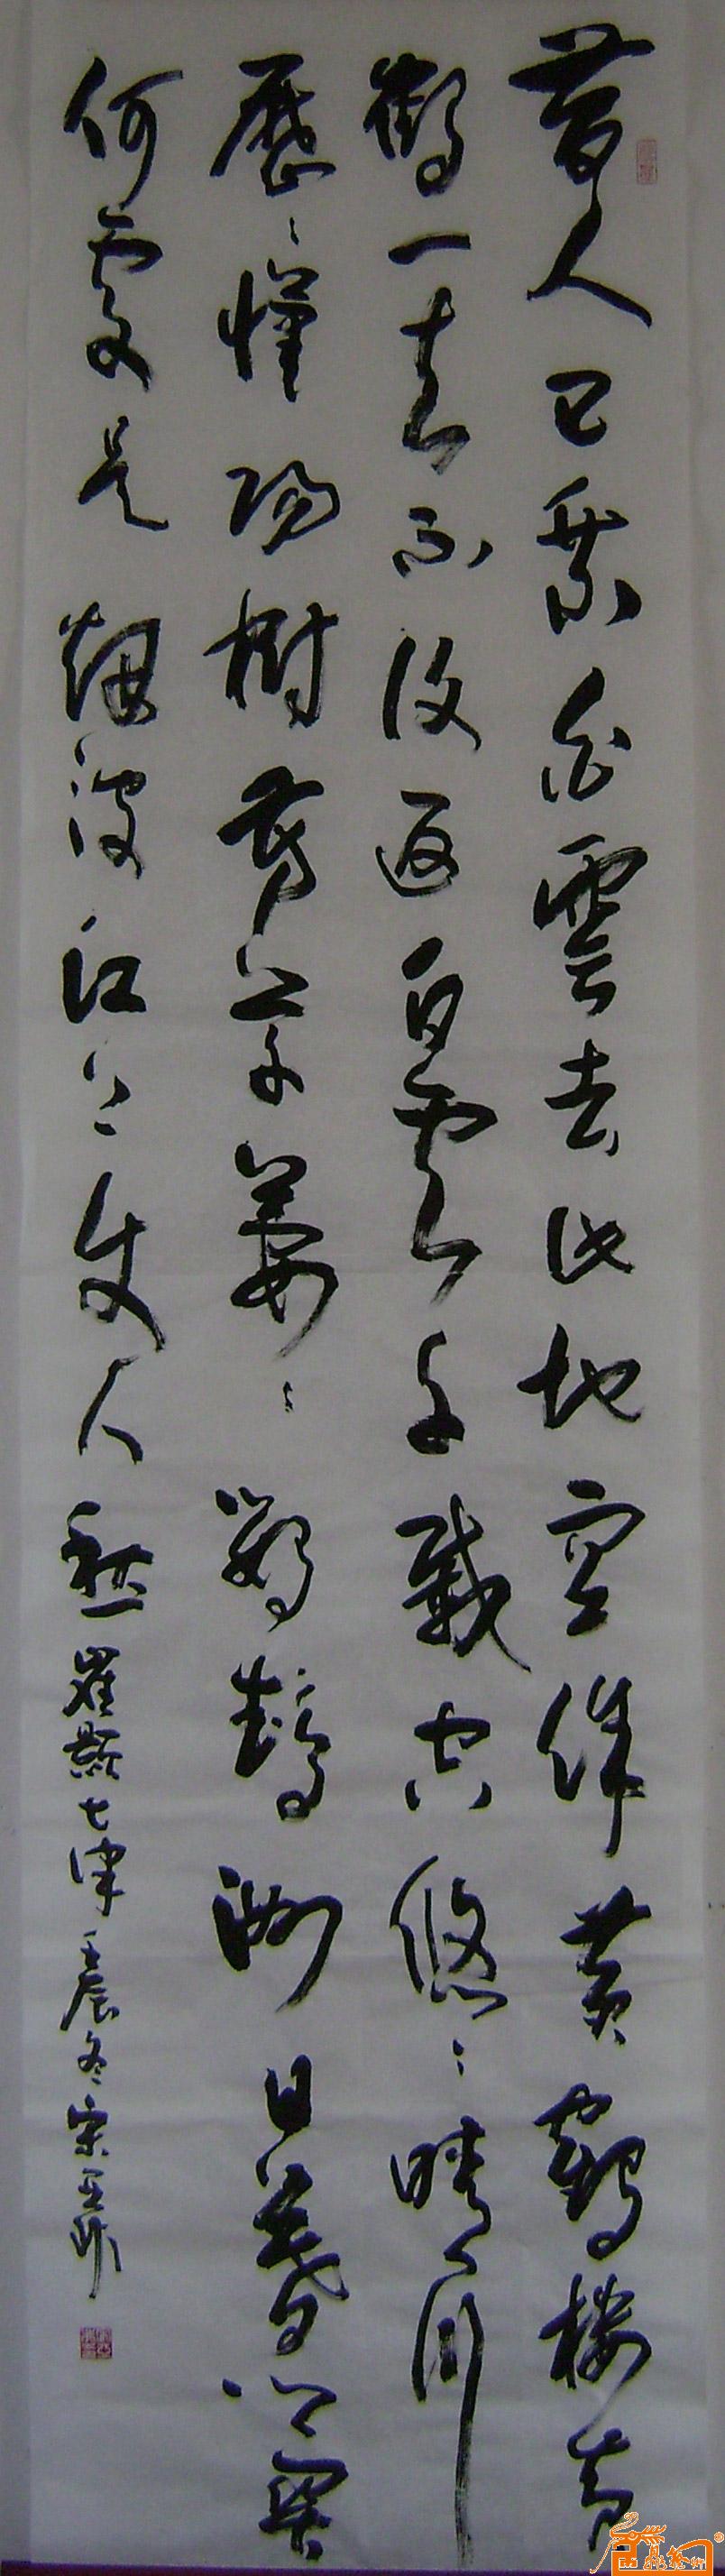 昔人已乘白雲去此地空餘黄鶴楼黄
鶴一去不復返白雲千載空悠々晴川
歷々漢陽樹芳草萋々鸚鵡洲日暮鄉關
何處是煙波江上使人愁 崔顥七律壬辰冬宋